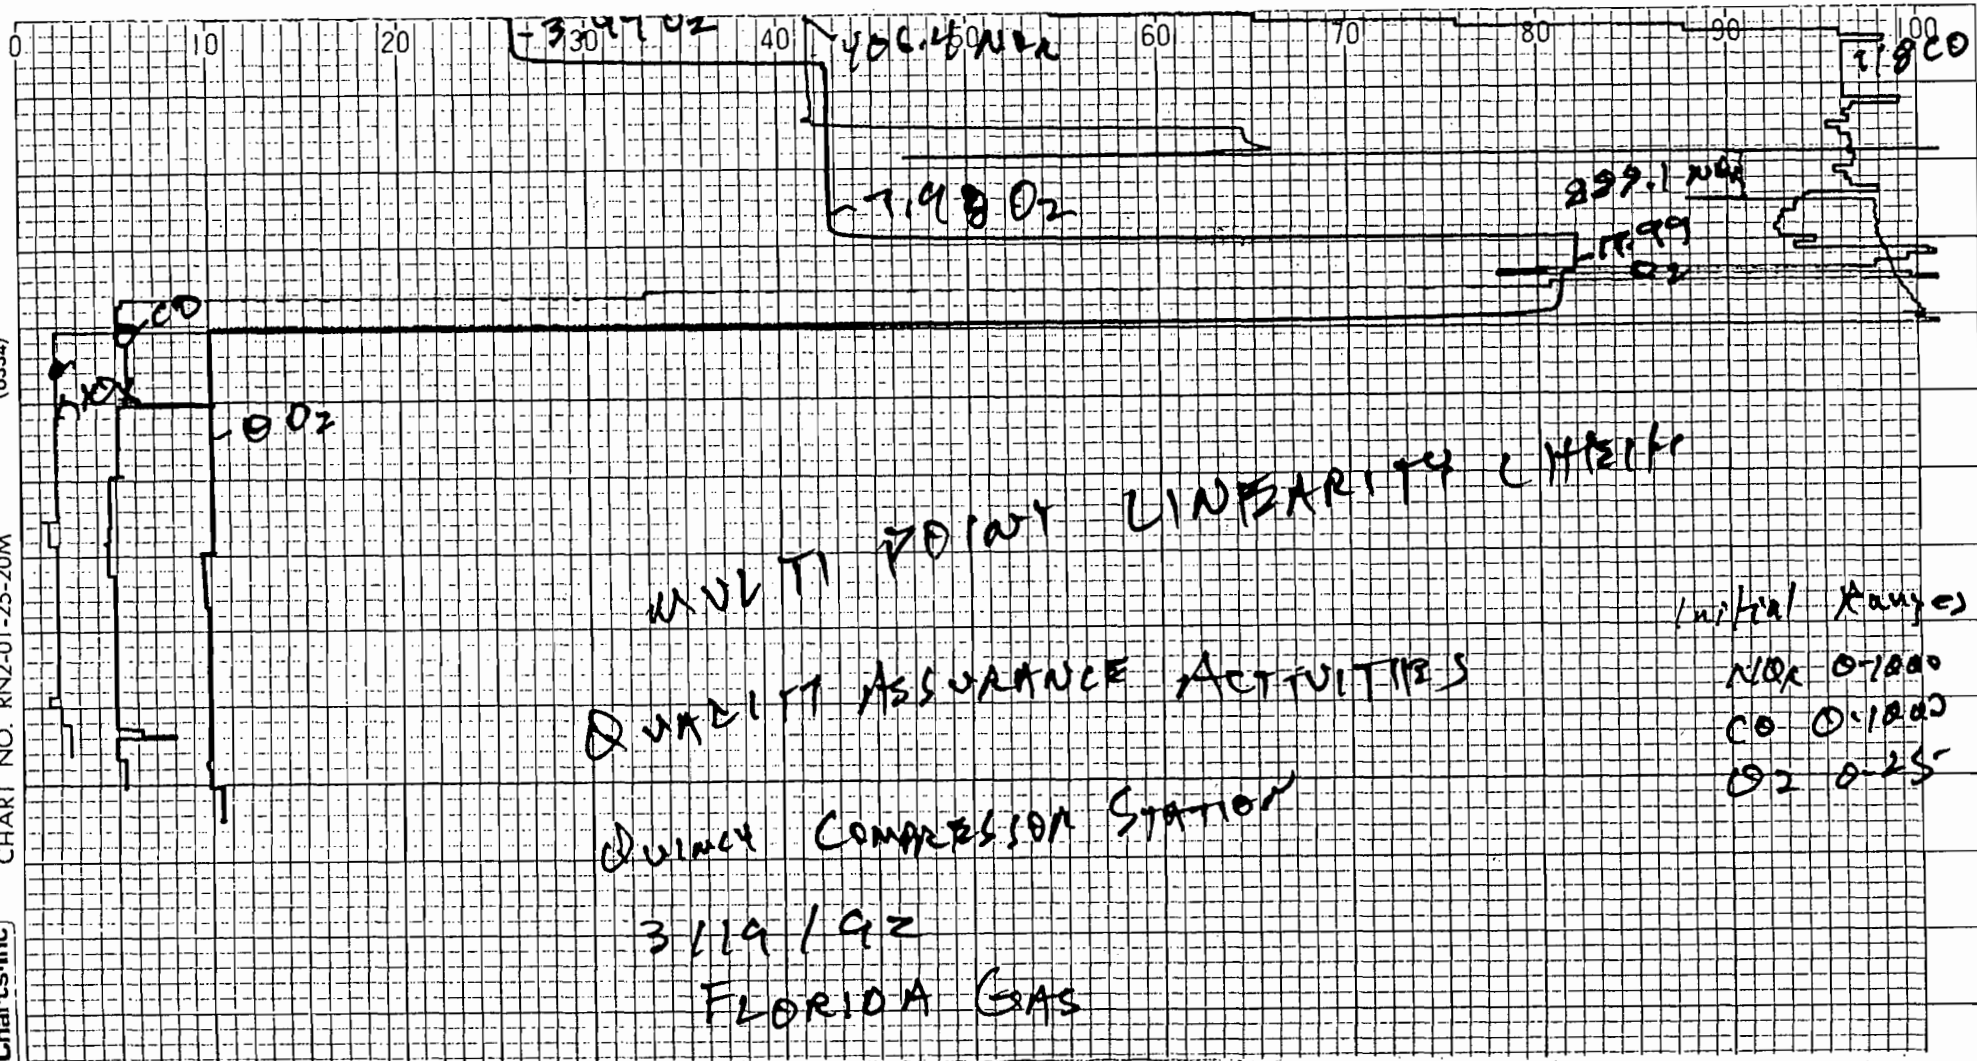 0 10 20 30 40 50 60 70 80 90 100
406.4 NOx
CO
7.98 O2
NOx
O2
CO
NOx
0 O2
MULTI POINT LINEARITY CHECK
QUALITY ASSURANCE ACTIVITIES
QUINCY COMPRESSOR STATION
3/19/92
FLORIDA GAS
Initial Ranges
NOx 0-1000
CO 0-1000
O2 0-25
CHART NO. RN2-01-25-20M